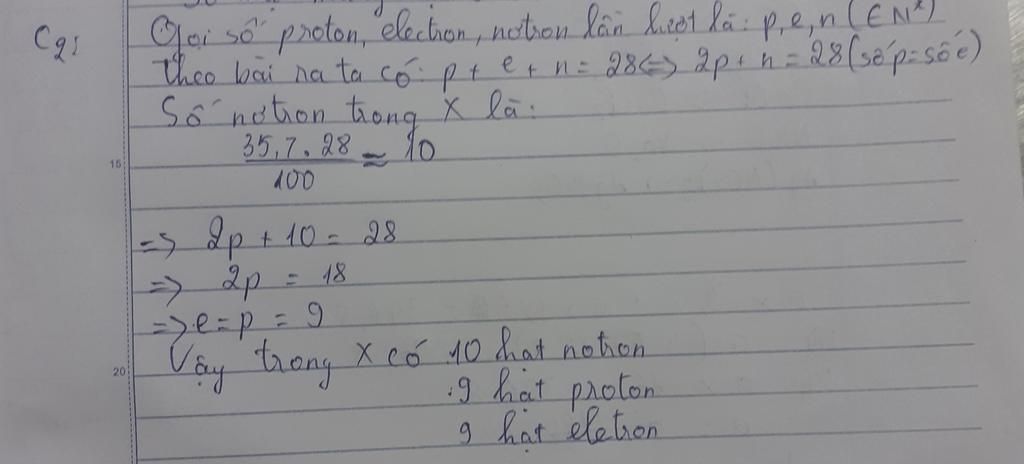 C2:
Gọi số proton, electron, notron lần lượt là: p, e, n (∈ N*)
Theo bài ra ta có: p + e + n = 28 <=> 2p + n = 28 (số p = số e)
Số notron trong X là:
35,7 . 28 / 100 ≈ 10
15
=> 2p + 10 = 28
=> 2p = 18
=> e = p = 9
Vậy trong X có 10 hạt notron
20
9 hạt proton
9 hạt eletron